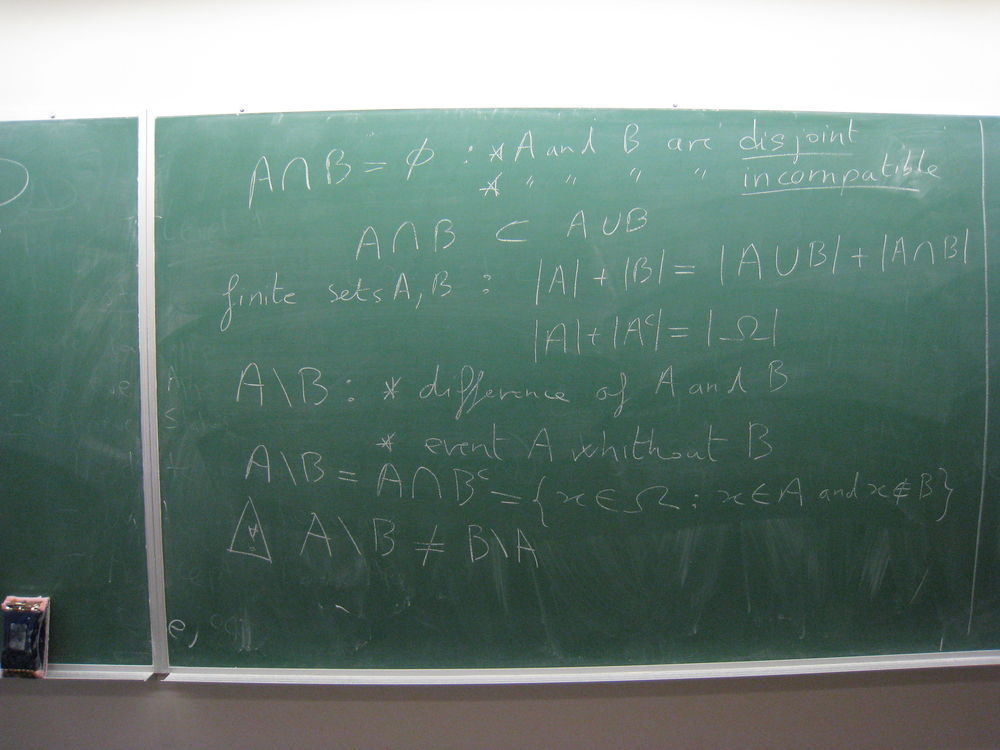 A∩B = ∅ : * A and B are disjoint
* " " " " incompatible
A∩B ⊂ A∪B
finite sets A, B : |A| + |B| = |A∪B| + |A∩B|
|A| + |Aᶜ| = |Ω|
A\B : * difference of A and B
* event A whithout B
A\B = A∩Bᶜ = {x∈Ω : x∈A and x∉B}
! A\B ≠ B\A
e,